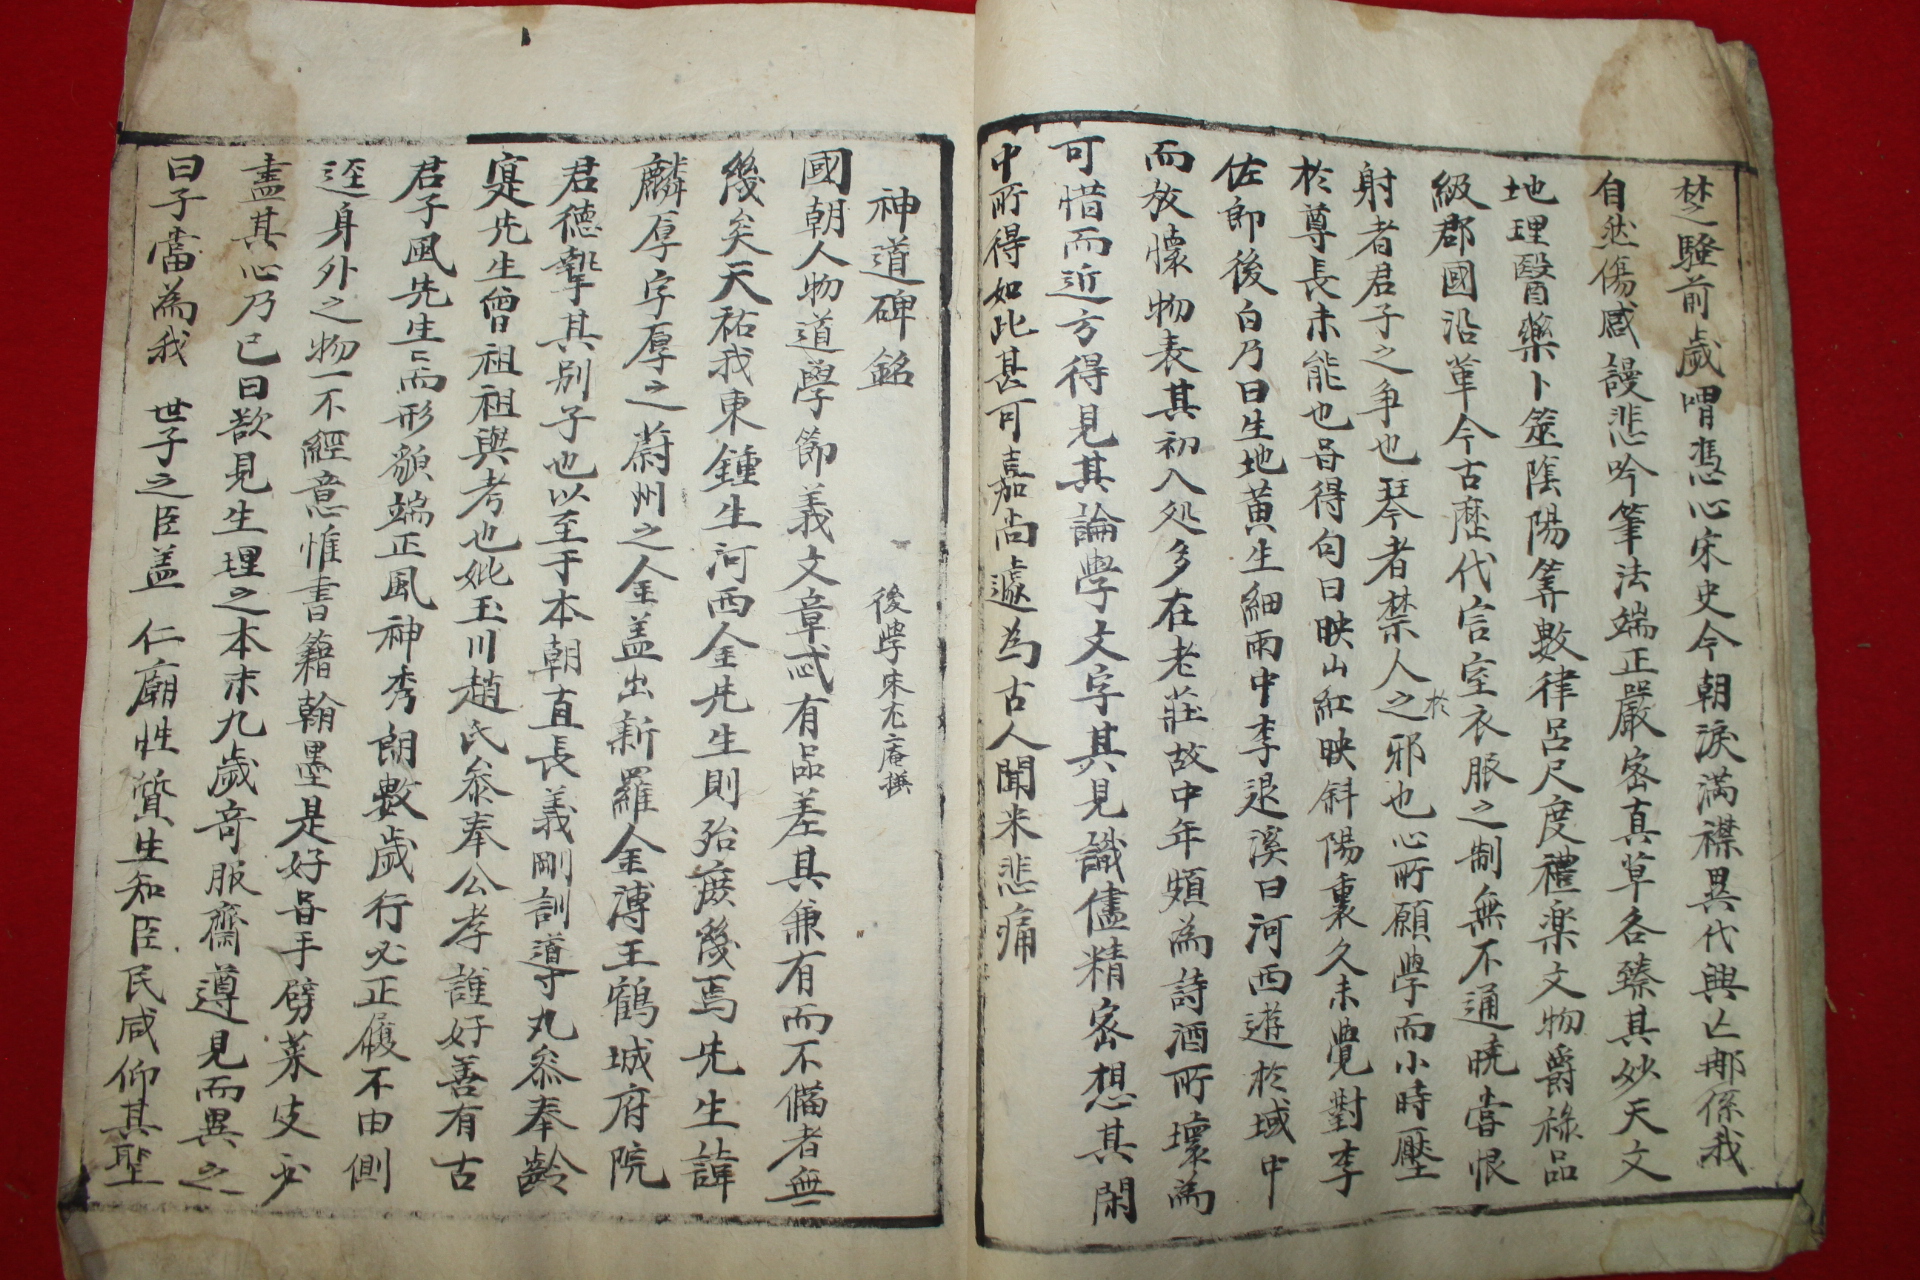 楚騷前歲喟憑心宋史今朝淚滿襟異代興亡那係我
自然傷感謾悲吟筆法端正嚴密真草各臻其妙天文
地理醫藥卜筮陰陽筭數律呂尺度禮楽文物爵祿品
級郡國沿革今古歷代宮室衣服之制無不通曉嘗恨
射者君子之争也琴者禁人之邪也心所願學而小時壓
於
於尊長未能也甞得句曰映山紅映斜陽裏久未覺對李
佐郎後白乃曰生地黃生細雨中李退溪曰河西遊於域中
而放懷物表其初入処多在老莊故中年頗為詩酒所壞為
可惜而近方得見其論學文字其見識儘精密想其閑
中所得如此甚可嘉尚遽為古人聞来悲痛
神道碑銘
後學宋尤庵撰
國朝人物道學節義文章忒有品差其兼有而不備者無
幾矣天祐我東鍾生河西金先生則殆庶幾焉先生諱
麟厚字厚之蔚州之金盖出新羅金溥王鶴城府院
君德摯其別子也以至于本朝直長義剛訓導丸叅奉齡
寔先生曾祖祖與考也妣玉川趙氏叅奉公孝謹好善有古
君子風先生生而形貌端正風神秀朗數歲行必正履不由側
逕身外之物一不經意惟書籍翰墨是好甞手劈菜皮必
盡其心乃已曰欲見生理之本末九歲竒服齋遵見而異之
曰子當為我 世子之臣盖 仁廟性質生知臣民咸仰其聖